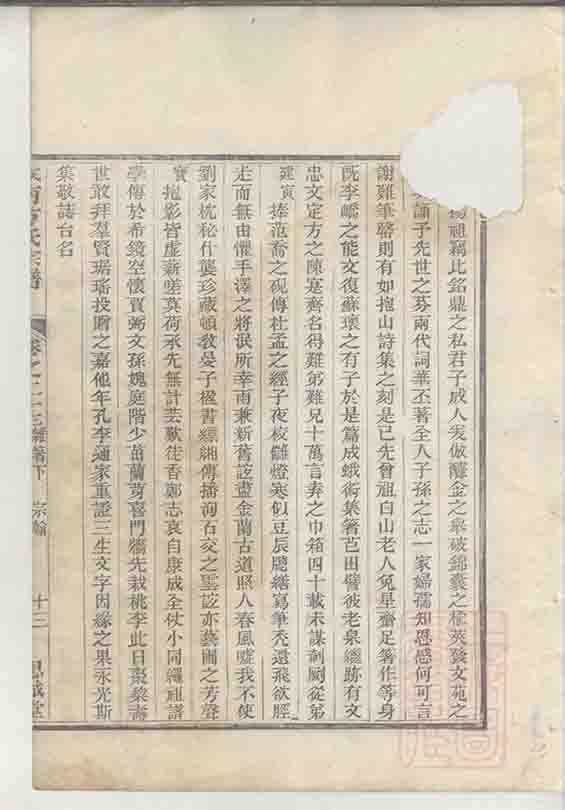 揚祖竊比銘鼎之私君子成人爰倣醵金之舉破錦囊之秘英發文苑之
誦予先世之芬兩代詞華丕著全人子孫之志一家婦孺知恩感何可言
謝難筆罄則有如抱山詩集之刻是已先曾祖白山老人兔星齋足著作等身
既李嶠之能文復蘇瓌之有子於是篇成蛾術集箸芑田譬彼老泉繼跡有文
忠文定方之陳寔齊名得難弟難兄十萬言弆之巾箱四十載未謀剞劂從弟
建寅捧范喬之硯傳杜孟之經子夜校讎燈寒似豆辰牕繕寫筆禿還飛欲脛
走而無由懼手澤之將泯所幸雨兼新舊誼盡金蘭古道照人春風噓我不使
劉家枕秘什襲珍藏頓敎晏子楹書縹緗傳播洵石交之雲誼亦藝圃之芳聲
寶抱影皆虛薪嗟莫荷承先無計芸歎徒香鄭志哀自康成全仗小同纘祖譜
學傳於希鏡空懷賈弼文孫媿庭階少茁蘭芽喜門牆先栽桃李此日棗棃壽
世敢拜羣賢琚瑤投贈之嘉他年孔李通家重證三生文字因緣之果永光斯
集敬誌台名
方氏宗譜
卷之二十七雜著下
宗翰
十三